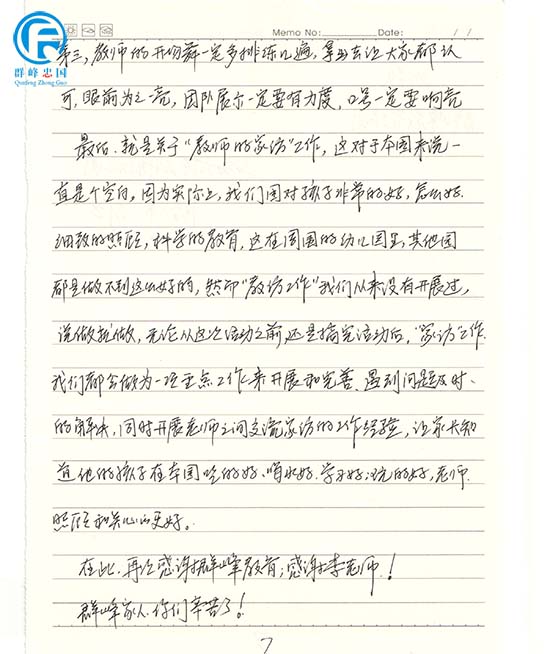 Memo No: Date: / /
群峰忠国
Qunfeng Zhong Guo
第三,教师的开场舞一定多排练几遍,拿出去让大家都认
可,眼前为之一亮,团队展示一定要有力度,口号一定要响亮
最后,就是关于“教师的家访”工作,这对于本园来说一
直是个空白,因为实际上,我们园对孩子非常的好,怎么好
细致的照顾,科学的教育,这在周围的幼儿园里,其他园
都是做不到这么好的,然而“教访工作”我们从来没有开展过,
说做就做,无论从这次活动之前,还是搞完活动后,“家访”工作
我们都会做为一项重点工作来开展和完善,遇到问题及时
的解决,同时开展老师之间交流家访的工作经验,让家长知
道他的孩子在本园吃的好、喝水好、学习好;玩的好,老师
照顾和关心的更好。
在此,再次感谢群峰教育;感谢李老师!
群峰家人,你们辛苦了!
7